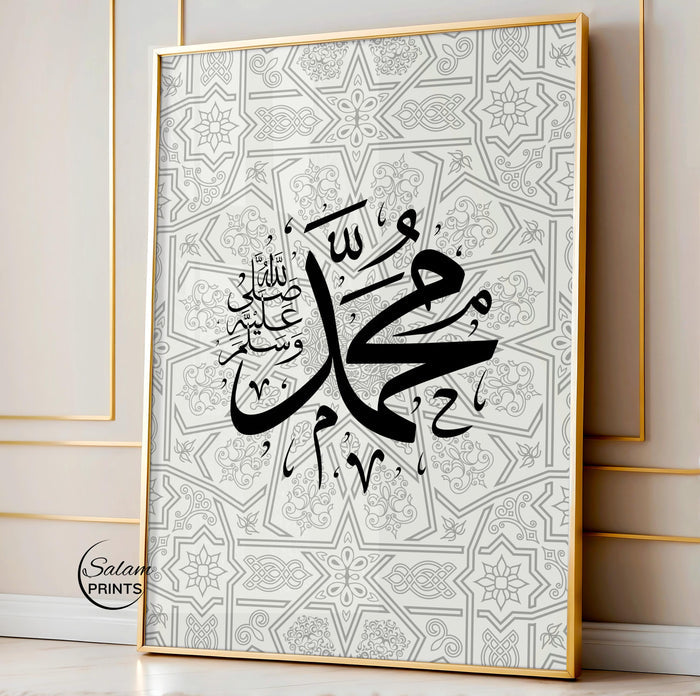 محمد
صلى الله
عليه
وسلم
Salam
PRINTS